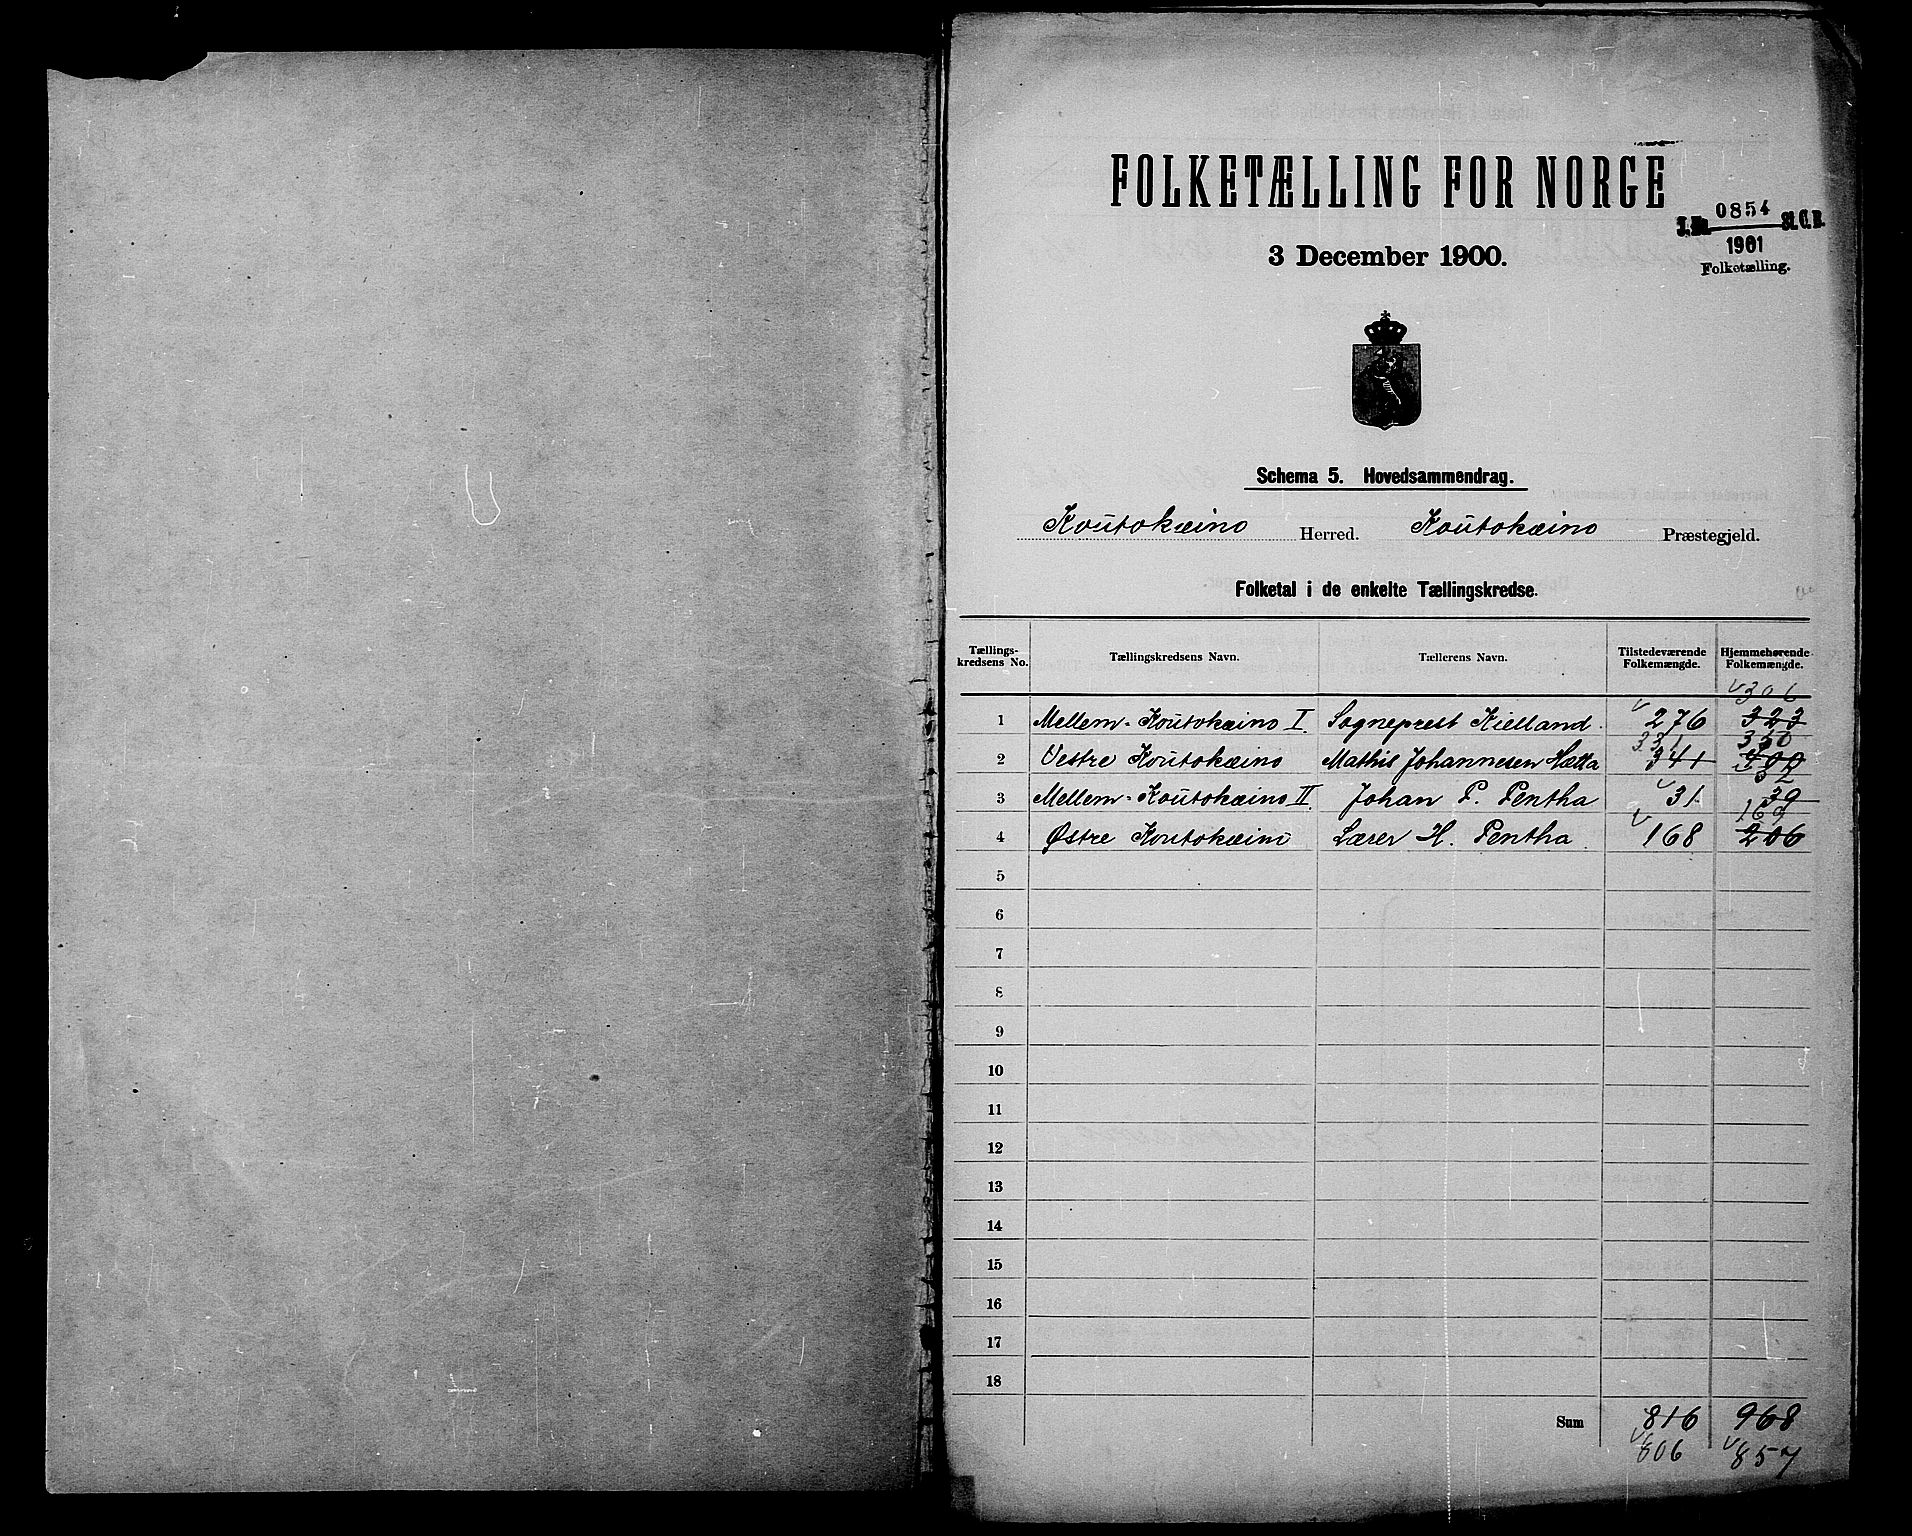 FOLKETÆLLING FOR NORGE
3 December 1900.
J. No. 0854 St. C. B.
1901
Folketælling.
Schema 5. Hovedsammendrag.
Koutokæino Herred. Koutokæino Præstegjeld.
Folketal i de enkelte Tællingskredse.
Tællings-kredsens No. Tællingskredsens Navn. Tællerens Navn. Tilstedeværende Folkemængde. Hjemmehørende Folkemængde.
306
1 Mellem-Koutokæino I. Sogneprest Kielland. 276 323
331 350
2 Vestre Koutokæino Mathis Johannesen Hætta 341 400
32
3 Mellem-Koutokæino II. Johan P. Pentha 31 39
169
4 Østre Koutokæino Lærer H. Pentha. 168 206
5
6
7
8
9
10
11
12
13
14
15
16
17
18
Sum 816 968
806 857